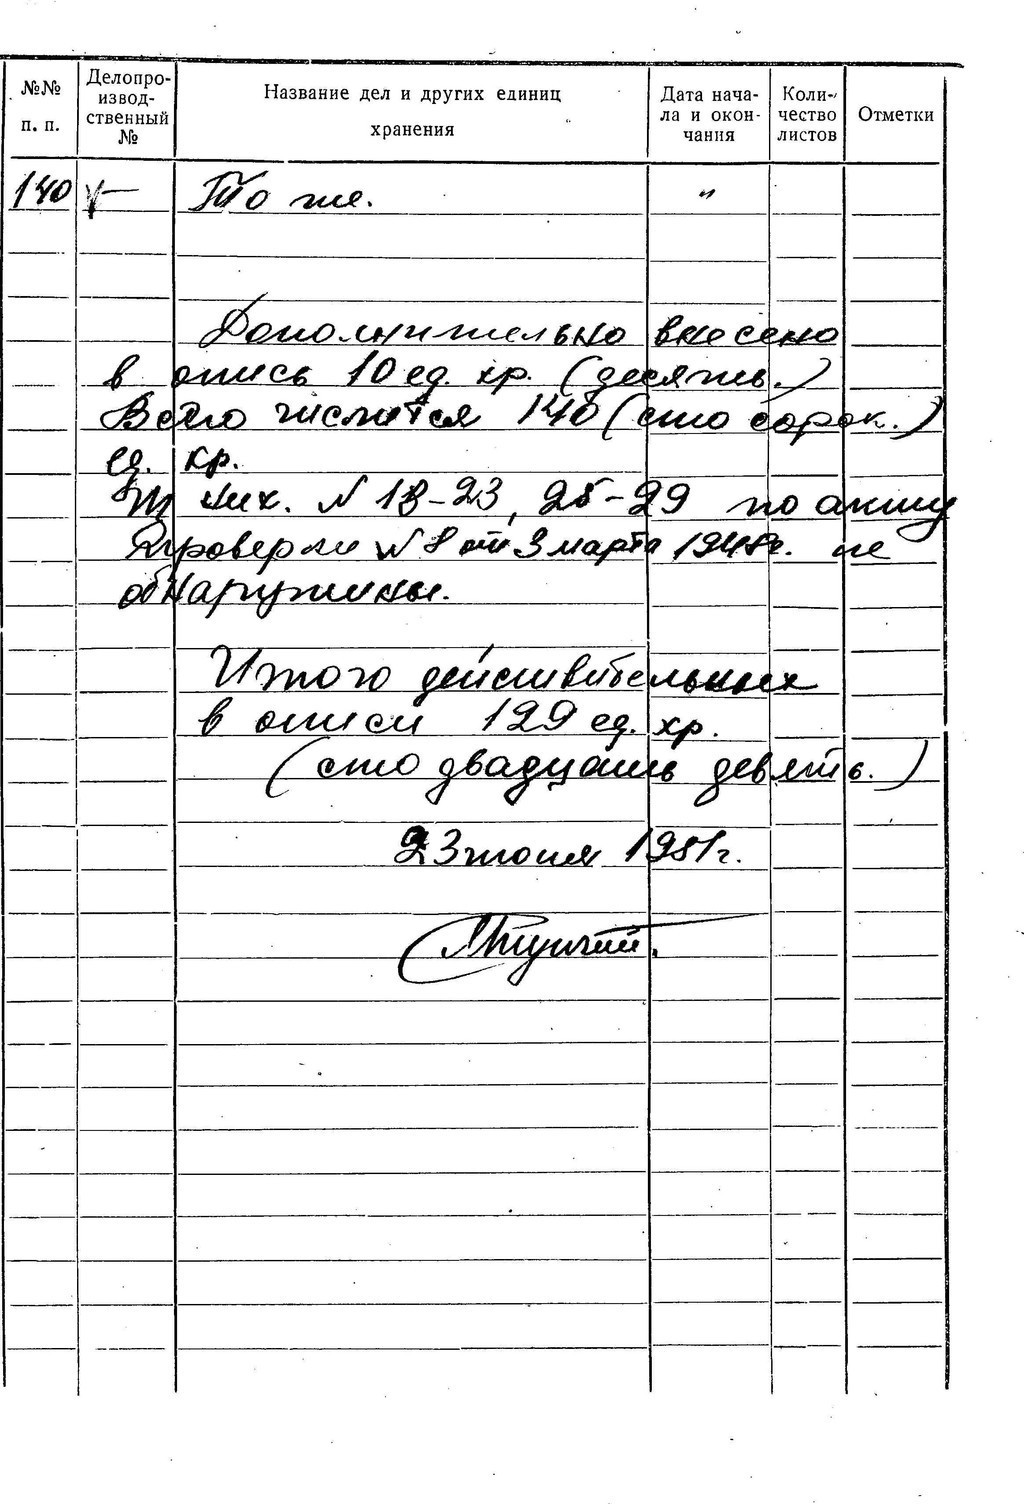 №№ п. п.
Делопроизводственный №
Название дел и других единиц хранения
Дата начала и окончания
Количество листов
Отметки
140 То же. "
Дополнительно внесено
в опись 10 ед. хр. (десять.)
Всего числится 140 (сто сорок.)
ед. хр.
Из них. N 18-23, 25-29 по акту
проверки N 8 от 3 марта 1948г. не
обнаружены.
Итого действительных
в описи 129 ед. хр.
(сто двадцать девять.)
23 июля 1951г.